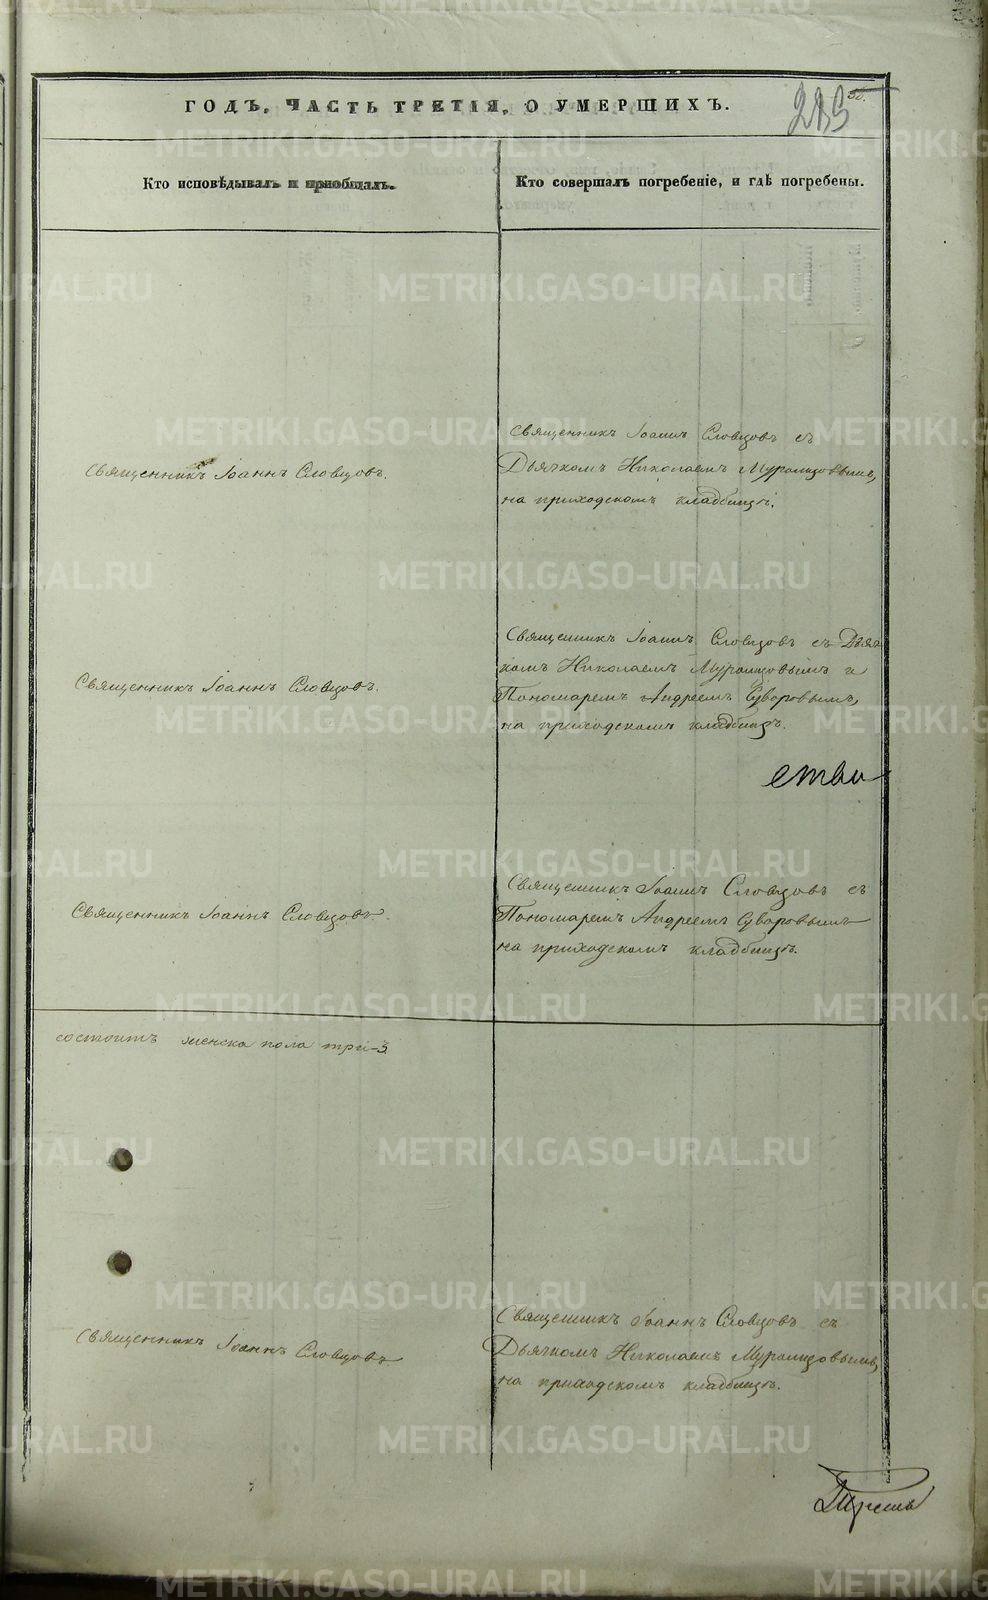 ГОДЪ. ЧАСТЬ ТРЕТІЯ, О УМЕРШИХЪ.
Кто исповѣдывалъ и пріобщалъ.
Кто совершалъ погребеніе, и гдѣ погребены.
Священникъ Іоаннъ Словцовъ.
Священникъ Іоаннъ Словцовъ съ
Дьячкомъ Николаемъ
на приходскомъ кладбищѣ.
Священникъ Іоаннъ Словцовъ.
Священникъ Іоаннъ Словцовъ съ Дьяч
комъ Николаемъ и
Пономаремъ Андреемъ Суворовымъ,
на приходскомъ кладбищѣ.
Священникъ Іоаннъ Словцовъ.
Священникъ Іоаннъ Словцовъ съ
Пономаремъ Андреемъ Суворовымъ
на приходскомъ кладбищѣ.
состоитъ женска пола три-3.
Священникъ Іоаннъ Словцовъ
Священникъ Іоаннъ Словцовъ съ
Дьячкомъ Николаемъ
на приходскомъ кладбищѣ.
METRIKI.GASO-URAL.RU